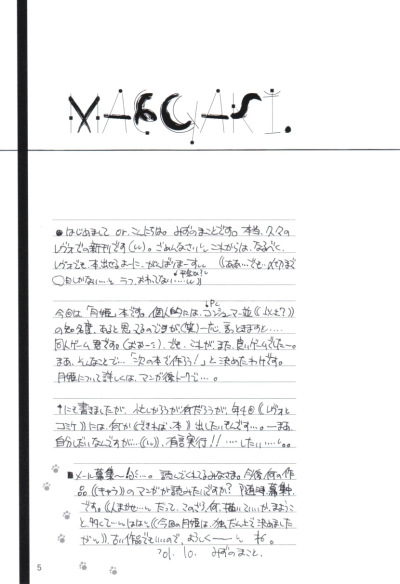 MAEGAKI.
●はじめまして or. こんにちは。みずのまことです。本当、久々の
レヴォでの新刊です(しし)。ごめんなさいし。これからは、なるべく、
レヴォでも、本出せるよーに、がんばりまーすし。《ああ…でも、〆切まで
〇日しかない…し。うっ、おわってない…しし》
今回は「月姫」本です。個人的には、コンシューマー並《以上?》
PC
の知名度、あると思ってるのですが(笑)一応、言っときますと……
同人ゲームの
です。《おぉーっ》、だが、これが、また、良いゲームでしてー。
まあ、そんなことで…「次の本で作ろう!」と決めたわけです。
月姫について詳しくは、マンガ後トークで…。
↑にて書きましたが、忙しかろうが何だろうが、年4回《レヴォと
コミケ》には、何か《できれば、本》出したいもんです…。ーまあ、
自分しだいなんですが…《しし》、有言実行!!……したい……し。
■メール募集〜
…。読んでくれてるみなさま。今後、何の作
品《キャラ》のマンガが読みたいですか?
随時募集
です。《人まかせ…し。だって、このごろ、何、描いていいか、まよう
こと多くて…し。ははは》、《今回の月姫は、独だん上で決めました
がし》、古い作品でもいいので、よろしく〜し。ね。
'01. 10. みずのまこと.
5